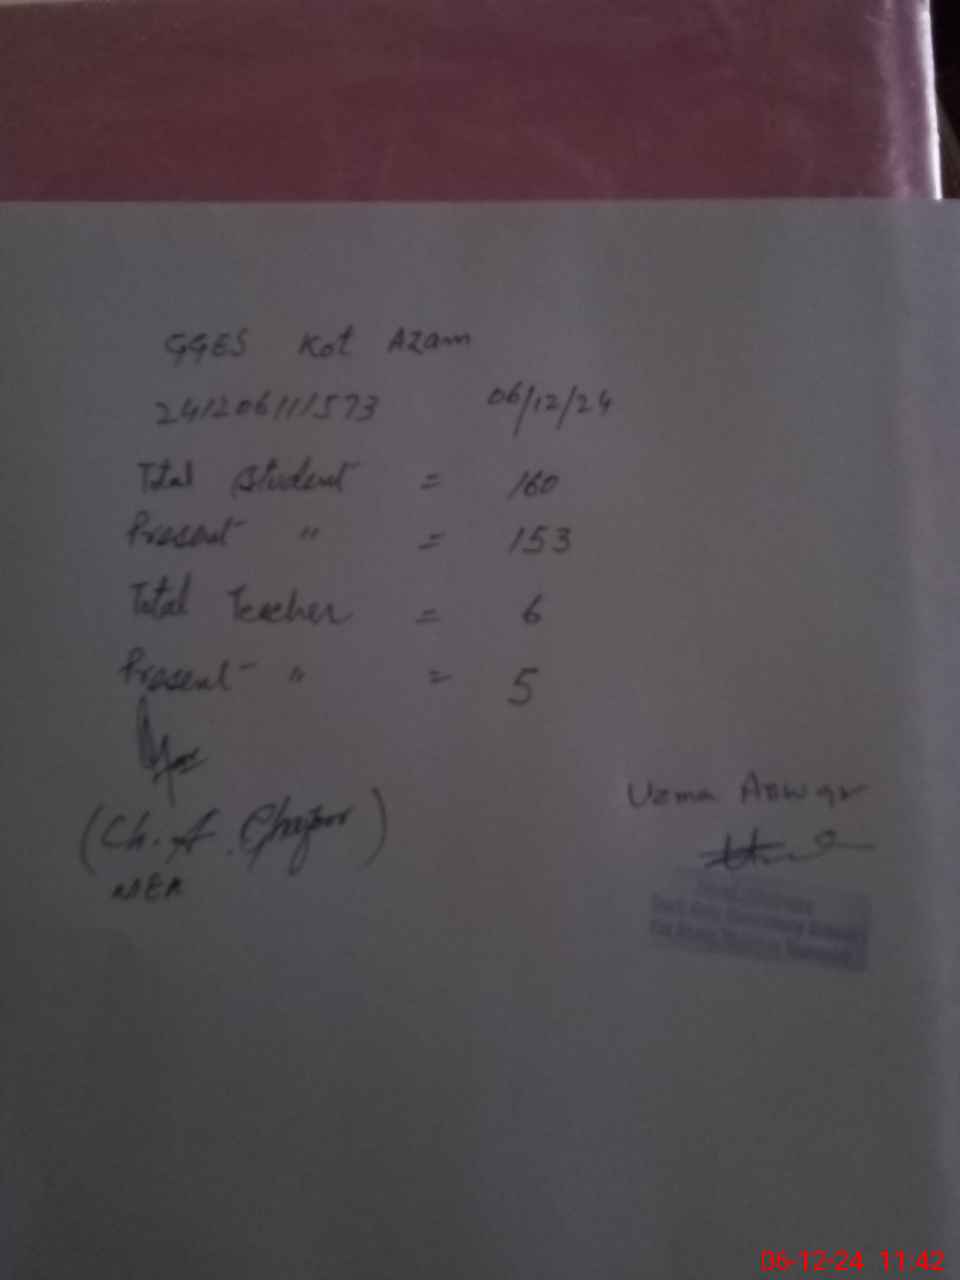 GGES Kot Azam
241206111573 06/12/24
Total Student = 160
Present " = 153
Total Teacher = 6
Present " = 5
(Ch. A. Ghafoor)
MEA
Uzma Anwar
06-12-24 11:42